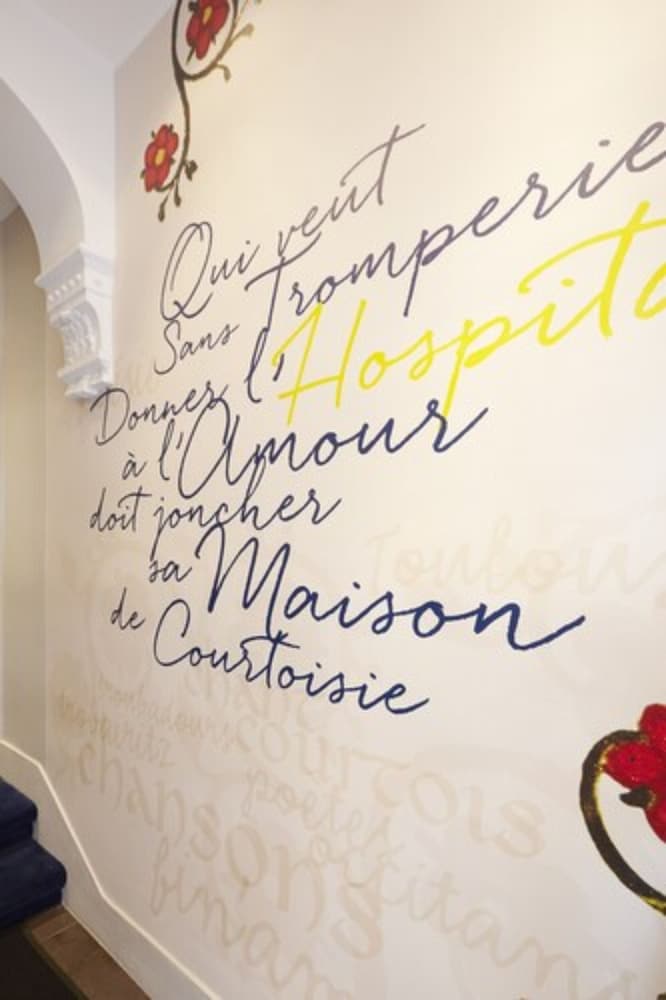 Qui veut
Sans Tromperie
Donner l'Hospita
à l'Amour
doit joncher
sa Maison
de Courtoisie
Toulou
troubadours
courtois
poetes
chansons
occitans